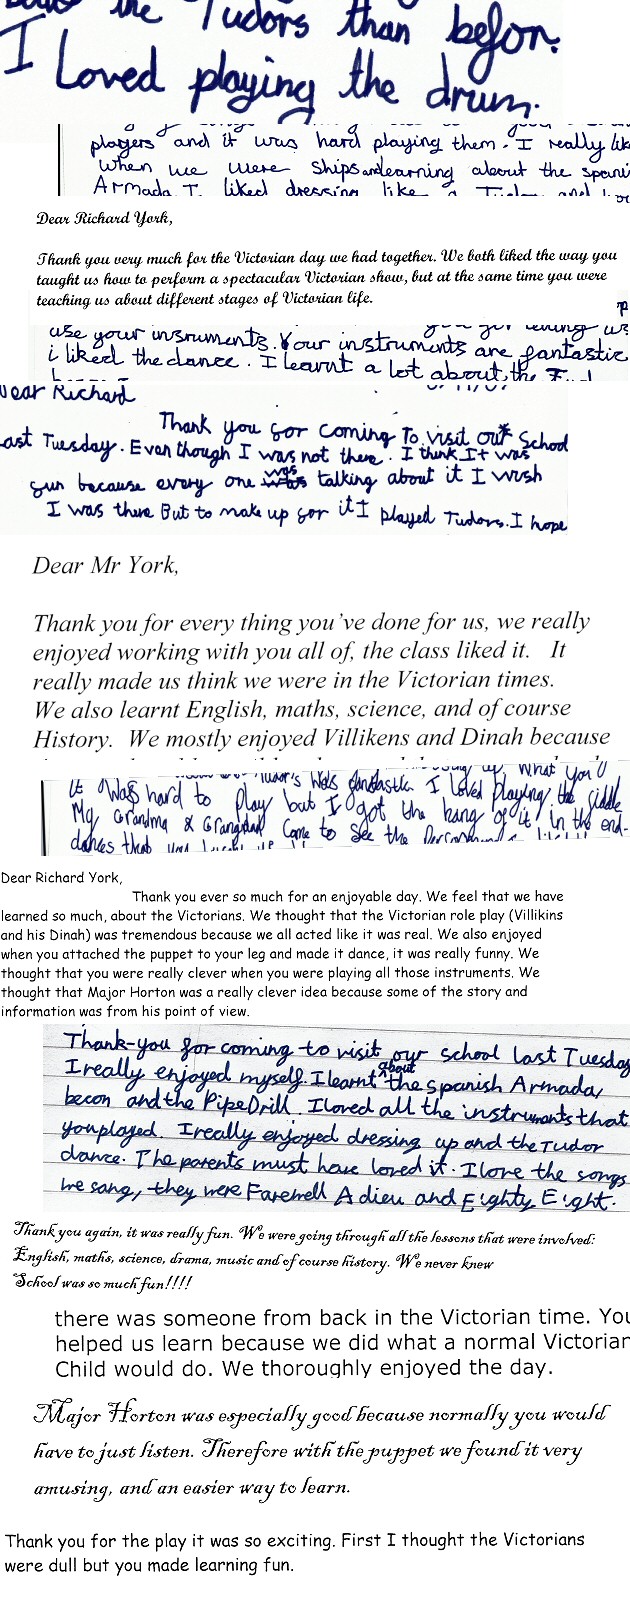 the Tudors than befor.
I Loved playing the drum.
players and it was hard playing them. I really lik
when we were ships and learning about the spani
Armada I liked dressing like a Tudor and
Dear Richard York,
Thank you very much for the Victorian day we had together. We both liked the way you
taught us how to perform a spectacular Victorian show, but at the same time you were
teaching us about different stages of Victorian life.
use your insruments. Your instruments are fantastic
i liked the dance. I learnt a lot about the
Dear Richard
Thank you for coming To visit our School
Last Tuesday. Even though I was not there. I think It was
fun because every one was talking about it I wish
I was there But to make up for it I played Tudors. I hope
Dear Mr York,
Thank you for every thing you've done for us, we really
enjoyed working with you all of, the class liked it. It
really made us think we were in the Victorian times.
We also learnt English, maths, science, and of course
History. We mostly enjoyed Villikens and Dinah because
Tudor's was fantastic. I Loved Playing the fiddle
It Was hard to Play but I got the hang of it, In the end.
My Grandma & Grandad Came to See the
dances that you
Dear Richard York,
Thank you ever so much for an enjoyable day. We feel that we have
learned so much, about the Victorians. We thought that the Victorian role play (Villikins
and his Dinah) was tremendous because we all acted like it was real. We also enjoyed
when you attached the puppet to your leg and made it dance, it was really funny. We
thought that you were really clever when you were playing all those instruments. We
thought that Major Horton was a really clever idea because some of the story and
information was from his point of view.
Thank-you for coming to visit our school last Tuesday
I really enjoyed myself. I learnt about the spanish Armada,
becon and the Pipe Drill. I loved all the instruments that
you played. I really enjoyed dressing up and the Tudor
dance. The parents must have loved it. I love the songs
we sang, they were Farewell Adieu and Eighty Eight.
Thank you again, it was really fun. We were going through all the lessons that were involved:
English, maths, science, drama, music and of course history. We never knew
School was so much fun!!!!
there was someone from back in the Victorian time. You
helped us learn because we did what a normal Victorian
Child would do. We thoroughly enjoyed the day.
Major Horton was especially good because normally you would
have to just listen. Therefore with the puppet we found it very
amusing, and an easier way to learn.
Thank you for the play it was so exciting. First I thought the Victorians
were dull but you made learning fun.